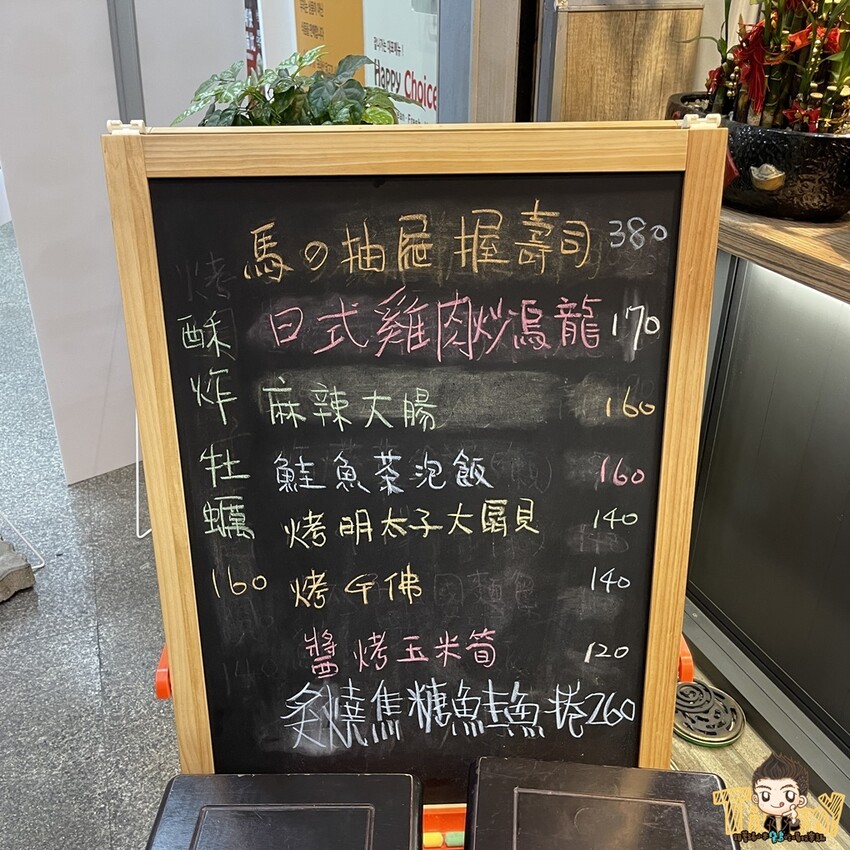 Happy Choice
馬の抽屜握壽司 380
日式雞肉炒烏龍 170
麻辣大腸 160
鮭魚茶泡飯 160
烤明太子大扇貝 140
烤千佛 140
醬烤玉米筍 120
炙燒焦糖鮭魚捲 260
酥炸牡蠣 160